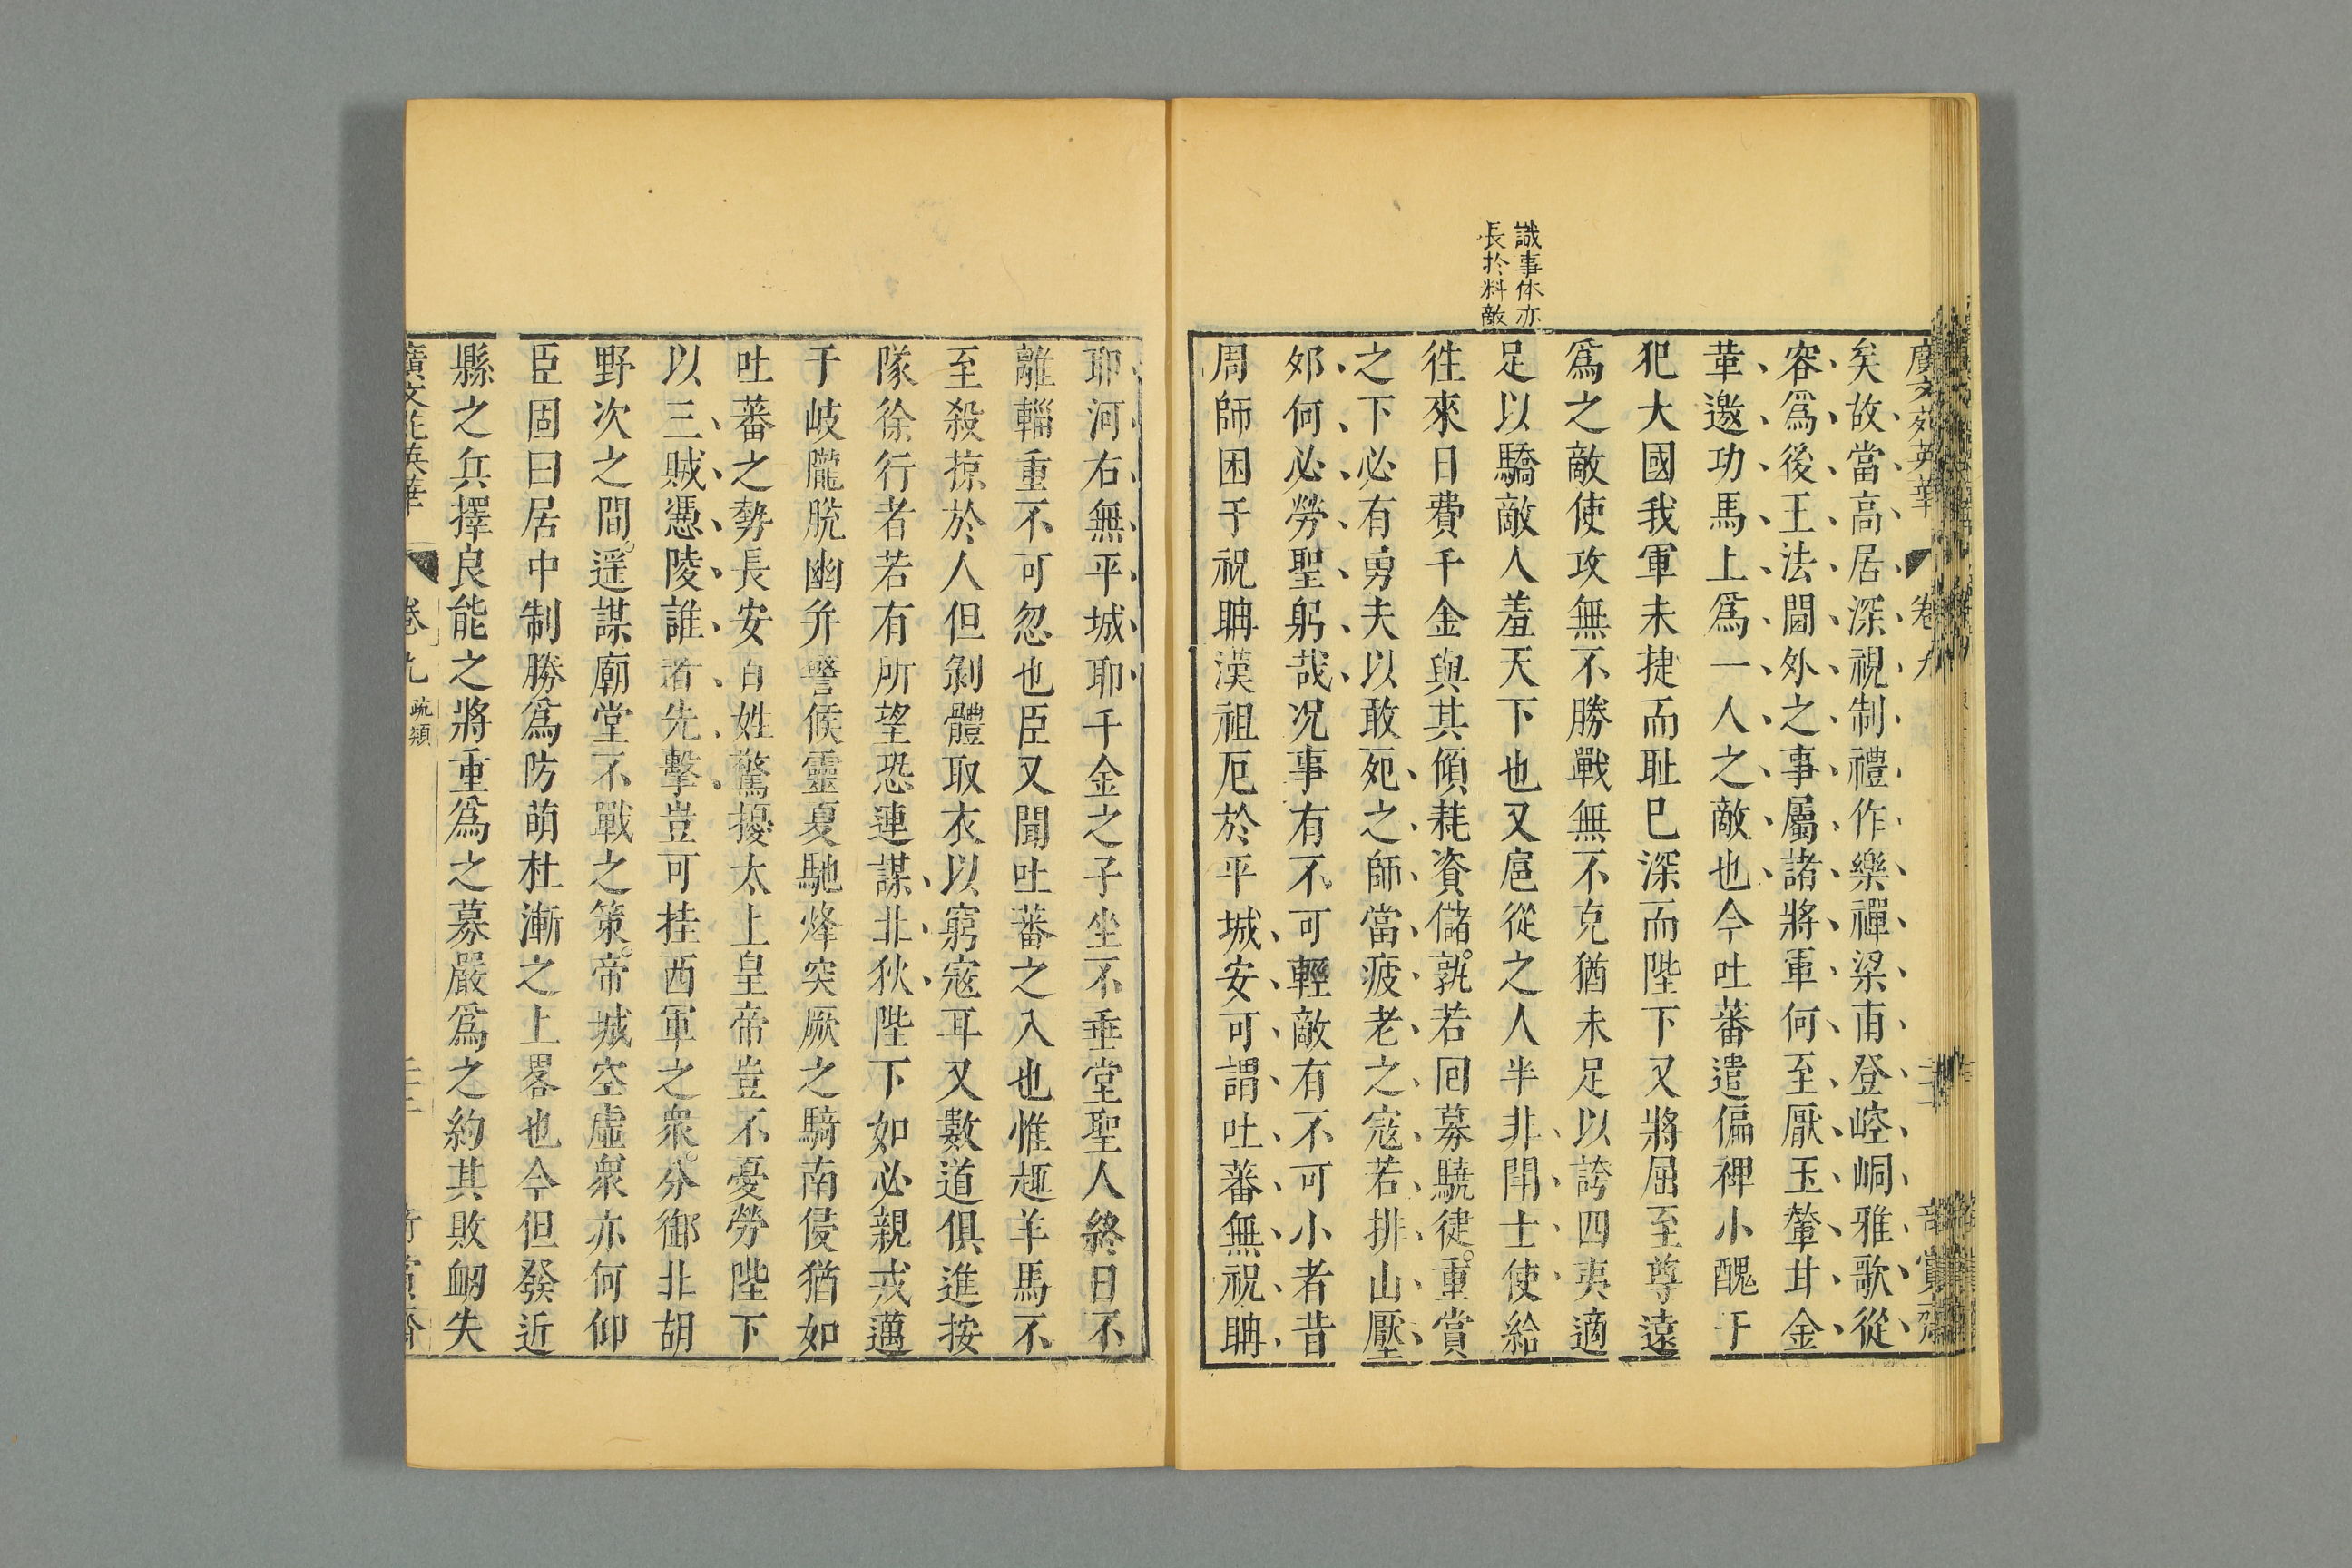 廣文苑英華 卷九
矣故當高居深視制禮作樂禪梁甫登崆峒雅歌從
容爲後王法閫外之事屬諸將軍何至厭玉輦甘金
革邀功馬上爲一人之敵也今吐蕃遣偏裨小醜于
犯大國我軍未捷而耻巳深而陛下又將屈至尊遠
爲之敵使攻無不勝戰無不克猶未足以誇四夷適
識事体亦
長於料敵
足以驕敵人羞天下也又扈從之人半非鬭士使給
徃來日費千金與其傾耗資儲孰若囘募驍徤重賞
之下必有勇夫以敢死之師當疲老之寇若排山壓
夘何必勞聖躬哉况事有不可輕敵有不可小者昔
周師困于祝聃漢祖厄於平城安可謂吐蕃無祝聃
耶河右無平城耶千金之子坐不垂堂聖人終日不
離輜重不可忽也臣又聞吐蕃之入也惟趣羊馬不
至殺掠於人但剝體取衣以窮寇耳又數道俱進按
隊徐行者若有所望恐連謀北狄陛下如必親戎邁
于岐隴脫幽幷警候靈夏馳烽突厥之騎南侵猶如
吐蕃之勢長安百姓驚擾太上皇帝豈不憂勞陛下
以三賊憑陵誰者先擊豈可挂西軍之衆分御北胡
野次之間遥謀廟堂不戰之策帝城空虛衆亦何仰
臣固曰居中制勝爲防萌杜漸之上畧也今但發近
縣之兵擇良能之將重爲之募嚴爲之約其敗衂失
廣文苑英華 卷九 疏類